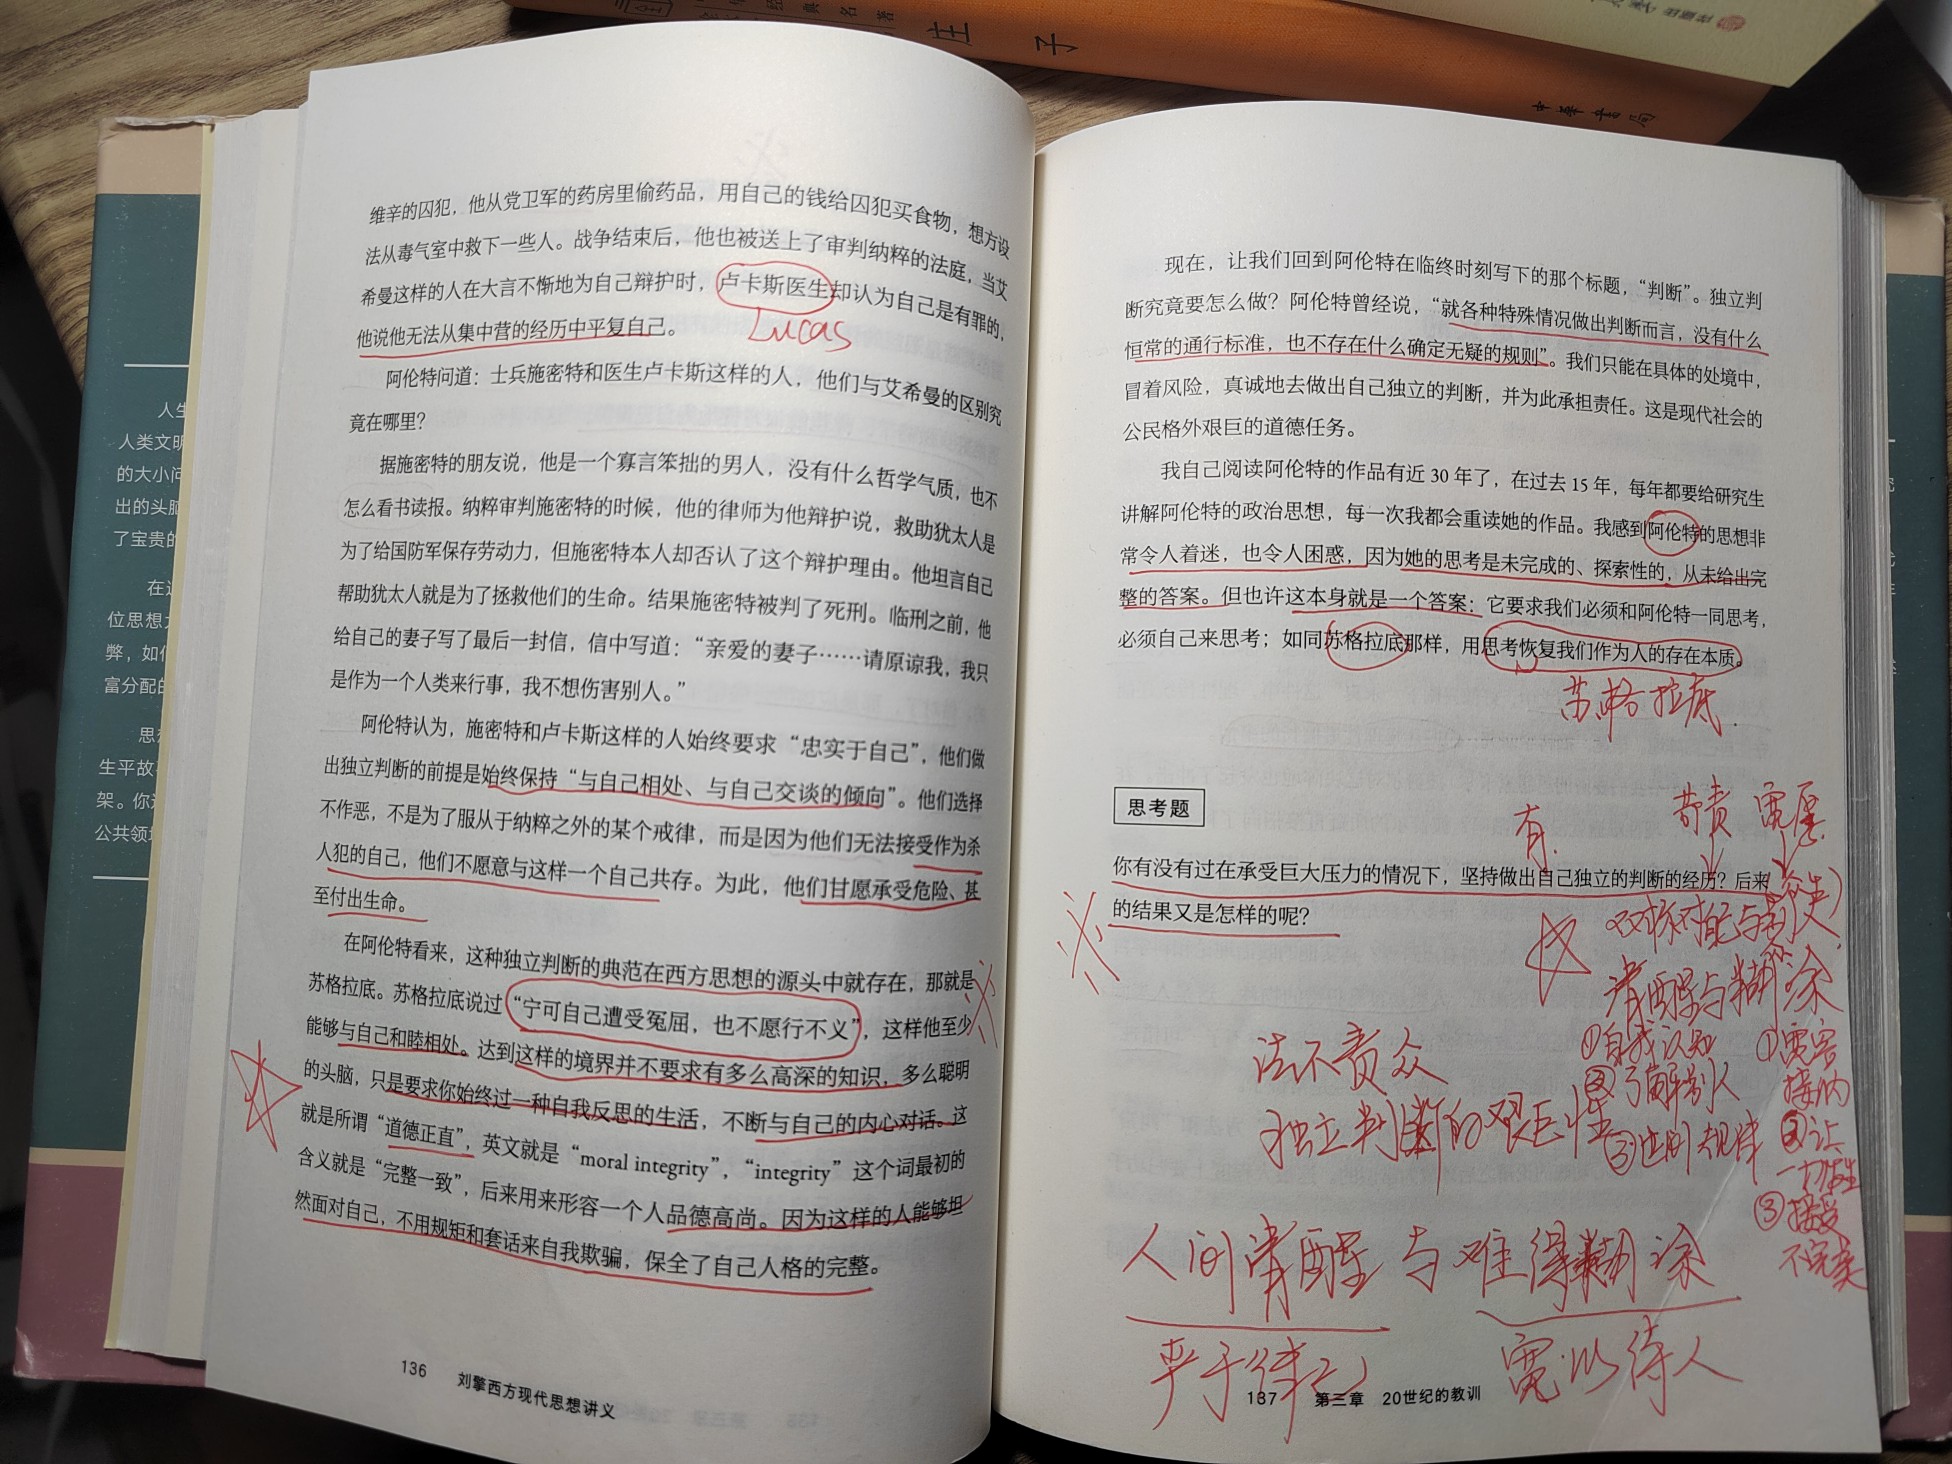 庄 子
中华书局
维辛的囚犯，他从党卫军的药房里偷药品，用自己的钱给囚犯买食物，想方设
法从毒气室中救下一些人。战争结束后，他也被送上了审判纳粹的法庭，当艾
希曼这样的人在大言不惭地为自己辩护时，卢卡斯医生却认为自己是有罪的，
他说他无法从集中营的经历中平复自己。
Lucas
阿伦特问道：士兵施密特和医生卢卡斯这样的人，他们与艾希曼的区别究
竟在哪里？
据施密特的朋友说，他是一个寡言笨拙的男人，没有什么哲学气质，也不
怎么看书读报。纳粹审判施密特的时候，他的律师为他辩护说，救助犹太人是
为了给国防军保存劳动力，但施密特本人却否认了这个辩护理由。他坦言自己
帮助犹太人就是为了拯救他们的生命。结果施密特被判了死刑。临刑之前，他
给自己的妻子写了最后一封信，信中写道：“亲爱的妻子……请原谅我，我只
是作为一个人类来行事，我不想伤害别人。”
阿伦特认为，施密特和卢卡斯这样的人始终要求“忠实于自己”，他们做
出独立判断的前提是始终保持“与自己相处、与自己交谈的倾向”。他们选择
不作恶，不是为了服从于纳粹之外的某个戒律，而是因为他们无法接受作为杀
人犯的自己，他们不愿意与这样一个自己共存。为此，他们甘愿承受危险、甚
至付出生命。
在阿伦特看来，这种独立判断的典范在西方思想的源头中就存在，那就是
苏格拉底。苏格拉底说过“宁可自己遭受冤屈，也不愿行不义”，这样他至少
能够与自己和睦相处。达到这样的境界并不要求有多么高深的知识，多么聪明
的头脑，只是要求你始终过一种自我反思的生活，不断与自己的内心对话。这
就是所谓“道德正直”，英文就是“moral integrity”，“integrity”这个词最初的
含义就是“完整一致”，后来用来形容一个人品德高尚。因为这样的人能够坦
然面对自己，不用规矩和套话来自我欺骗，保全了自己人格的完整。
136 刘擎西方现代思想讲义
现在，让我们回到阿伦特在临终时刻写下的那个标题，“判断”。独立判
断究竟要怎么做？阿伦特曾经说，“就各种特殊情况做出判断而言，没有什么
恒常的通行标准，也不存在什么确定无疑的规则”。我们只能在具体的处境中，
冒着风险，真诚地去做出自己独立的判断，并为此承担责任。这是现代社会的
公民格外艰巨的道德任务。
我自己阅读阿伦特的作品有近 30 年了，在过去 15 年，每年都要给研究生
讲解阿伦特的政治思想，每一次我都会重读她的作品。我感到阿伦特的思想非
常令人着迷，也令人困惑，因为她的思考是未完成的、探索性的，从未给出完
整的答案。但也许这本身就是一个答案：它要求我们必须和阿伦特一同思考，
必须自己来思考；如同苏格拉底那样，用思考恢复我们作为人的存在本质。
苏格拉底
思考题
有
苛责 宽恕
你有没有过在承受巨大压力的情况下，坚持做出自己独立的判断的经历？后来
的结果又是怎样的呢？
清醒与糊涂
①自我认知
②了解别人
③世间规律
①宽容
接纳
②让
一切发生
③接受
不完美
法不责众
独立判断的艰巨性
人间清醒与难得糊涂
严于律己
宽以待人
137 第三章 20世纪的教训
人生
人类文明
的大小问
出的头脑
了宝贵的
在这
位思想大
弊，如何
富分配的
思想
生平故事
架。你这
公共领域